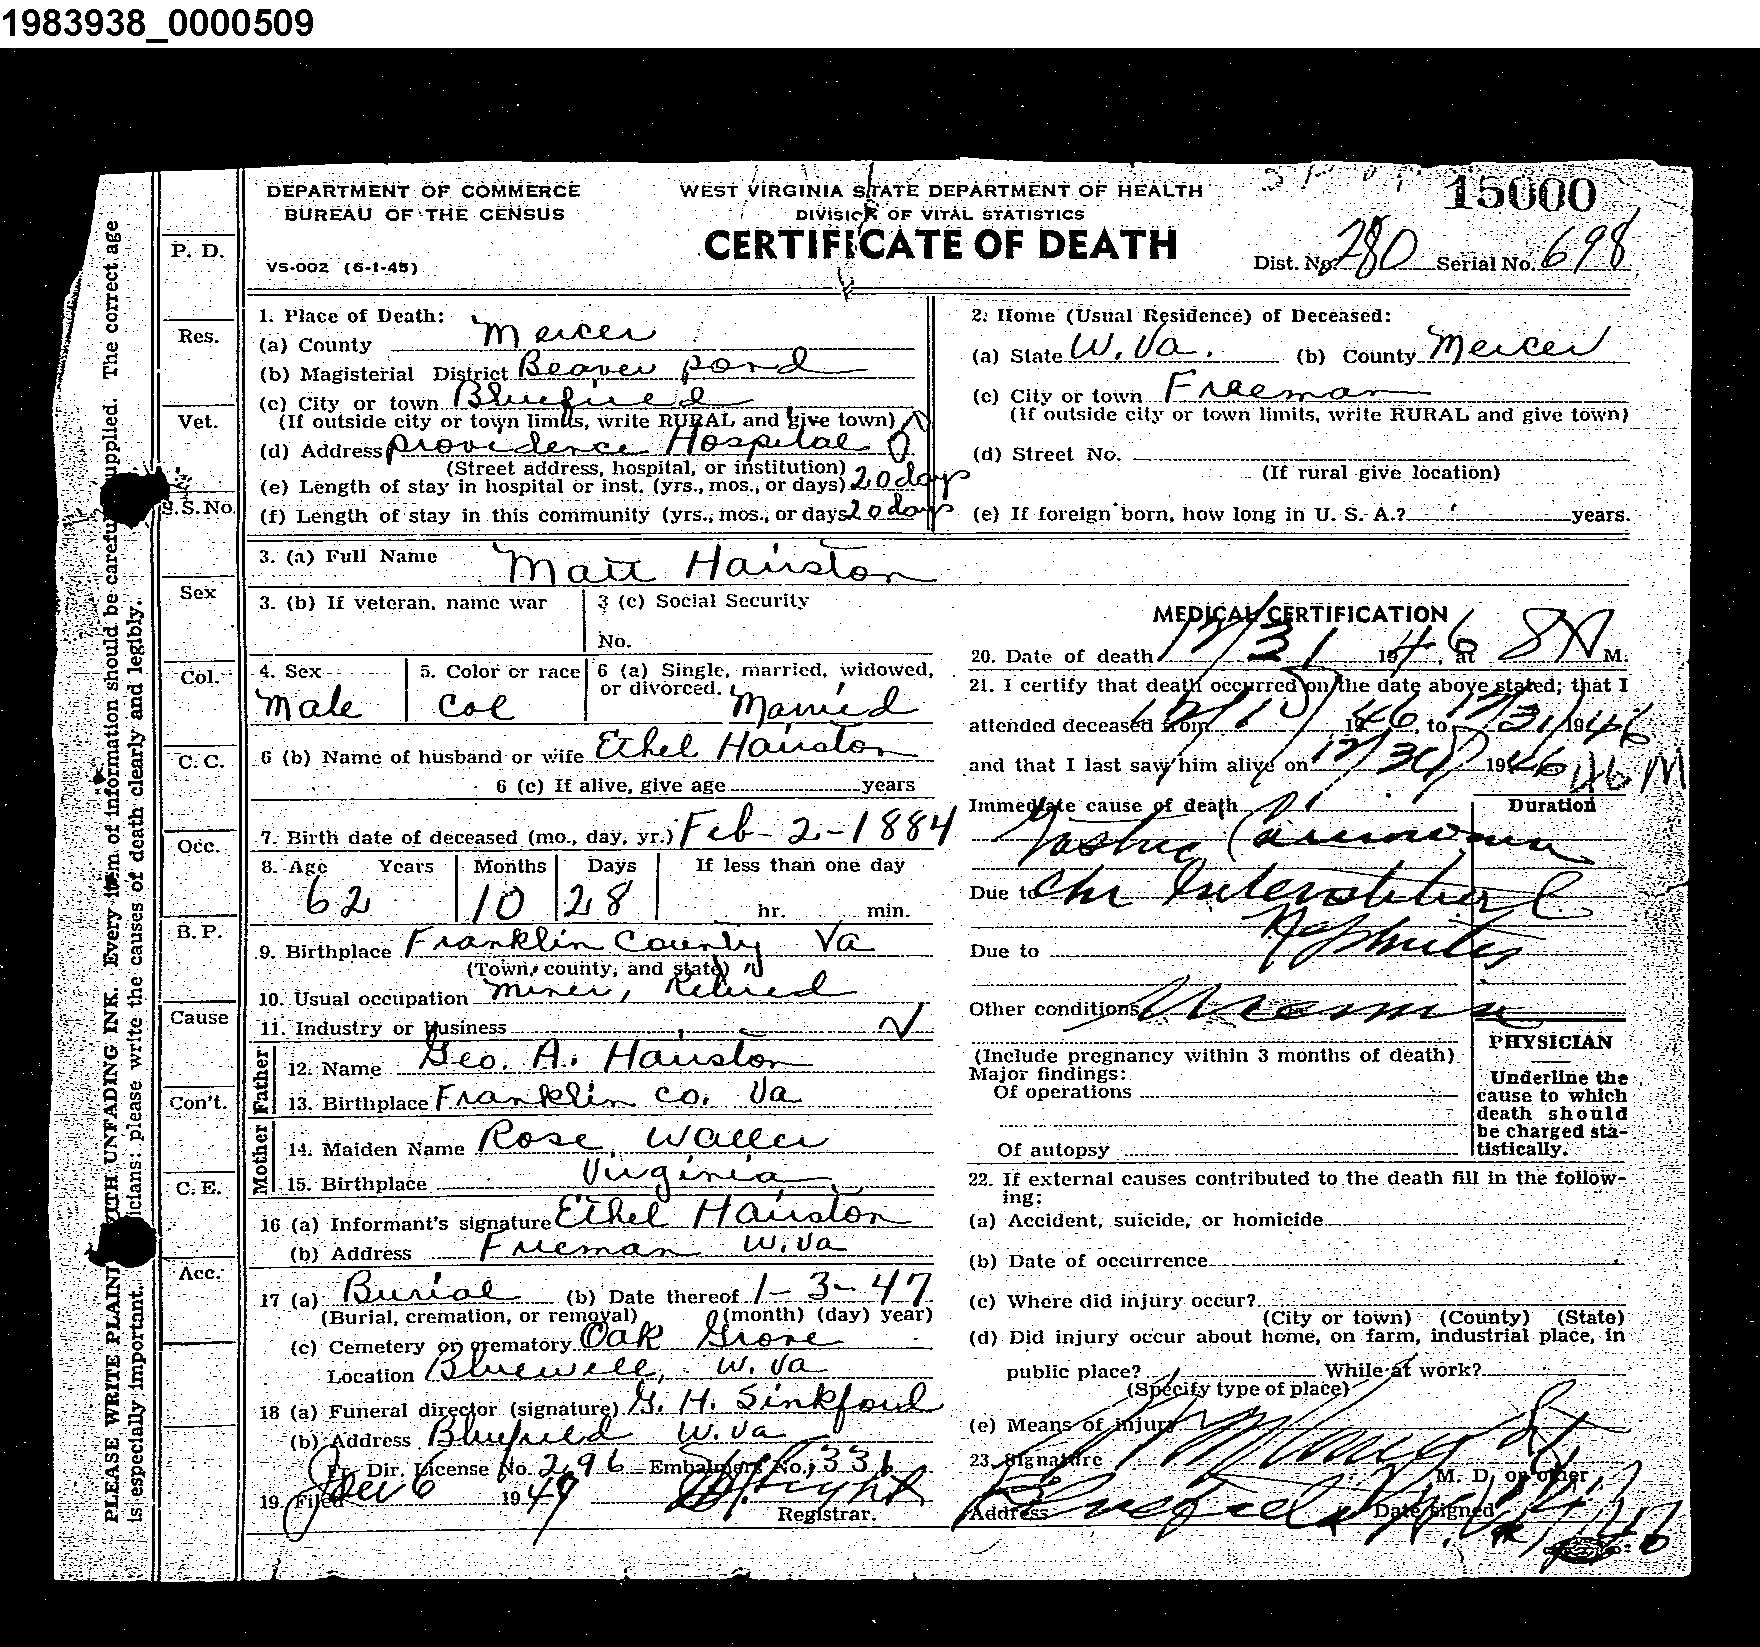 1983938_0000509
DEPARTMENT OF COMMERCE
BUREAU OF THE CENSUS
WEST VIRGINIA STATE DEPARTMENT OF HEALTH
DIVISION OF VITAL STATISTICS
CERTIFICATE OF DEATH
VS-002 (6-1-45)
15000
Dist. No. 280 Serial No. 698
PLEASE WRITE PLAINLY WITH UNFADING INK. Every item of information should be carefully supplied. The correct age
is especially important. Physicians: please write the causes of death clearly and legibly.
P. D.
Res.
Vet.
S.S. No.
Sex
Col.
C. C.
Occ.
B. P.
Cause
Con't.
C. E.
Acc.
1. Place of Death:
(a) County Mercer
(b) Magisterial District Beaver pond
(c) City or town Bluefield
(If outside city or town limits, write RURAL and give town)
(d) Address providence Hospital
(Street address, hospital, or institution)
(e) Length of stay in hospital or inst. (yrs., mos., or days) 20 days
(f) Length of stay in this community (yrs., mos., or days 20 days
2. Home (Usual Residence) of Deceased:
(a) State W. Va. (b) County Mercer
(c) City or town Freeman
(If outside city or town limits, write RURAL and give town)
(d) Street No.
(If rural give location)
(e) If foreign born, how long in U. S. A.? years.
3. (a) Full Name Matt Hairston
3. (b) If veteran, name war
3 (c) Social Security
No.
4. Sex Male
5. Color or race Col
6 (a) Single, married, widowed,
or divorced. Married
6 (b) Name of husband or wife Ethel Hairston
6 (c) If alive, give age years
7. Birth date of deceased (mo., day, yr.) Feb-2-1884
8. Age Years Months Days If less than one day
62 10 28 hr. min.
9. Birthplace Franklin County Va
(Town, county, and state)
10. Usual occupation Miner, Retired
11. Industry or business
Father
12. Name Geo. A. Hairston
13. Birthplace Franklin Co. Va
Mother
14. Maiden Name Rose Waller
15. Birthplace Virginia
16 (a) Informant's signature Ethel Hairston
(b) Address Freeman W. Va
17 (a) Burial (b) Date thereof 1-3-47
(Burial, cremation, or removal) (month) (day) year)
(c) Cemetery or crematory Oak Grove
Location Bluewell, W. Va
18 (a) Funeral director (signature) G. H. Sinkford
(b) Address Bluefield W. Va
Fr. Dir. License No. 296 Embalmers No. 331
19. Filed 6 1947
Registrar.
MEDICAL CERTIFICATION
20. Date of death 12/31 1946, at 8 A M.
21. I certify that death occurred on the date above stated; that I
attended deceased from 1946, to 12/31/1946
and that I last saw him alive on 12/30/1946
Immediate cause of death
Duration
Gastric Carcinoma
Due to Chr Interstitial
Nephritis
Due to
Other conditions Uremia
(Include pregnancy within 3 months of death)
Major findings:
Of operations
Of autopsy
PHYSICIAN
Underline the
cause to which
death should
be charged sta-
tistically.
22. If external causes contributed to the death fill in the follow-
ing:
(a) Accident, suicide, or homicide
(b) Date of occurrence
(c) Where did injury occur?
(City or town) (County) (State)
(d) Did injury occur about home, on farm, industrial place, in
public place? While at work?
(Specify type of place)
(e) Means of injury
23. Signature
M. D. or other
Address Bluefield W. Va. Date signed